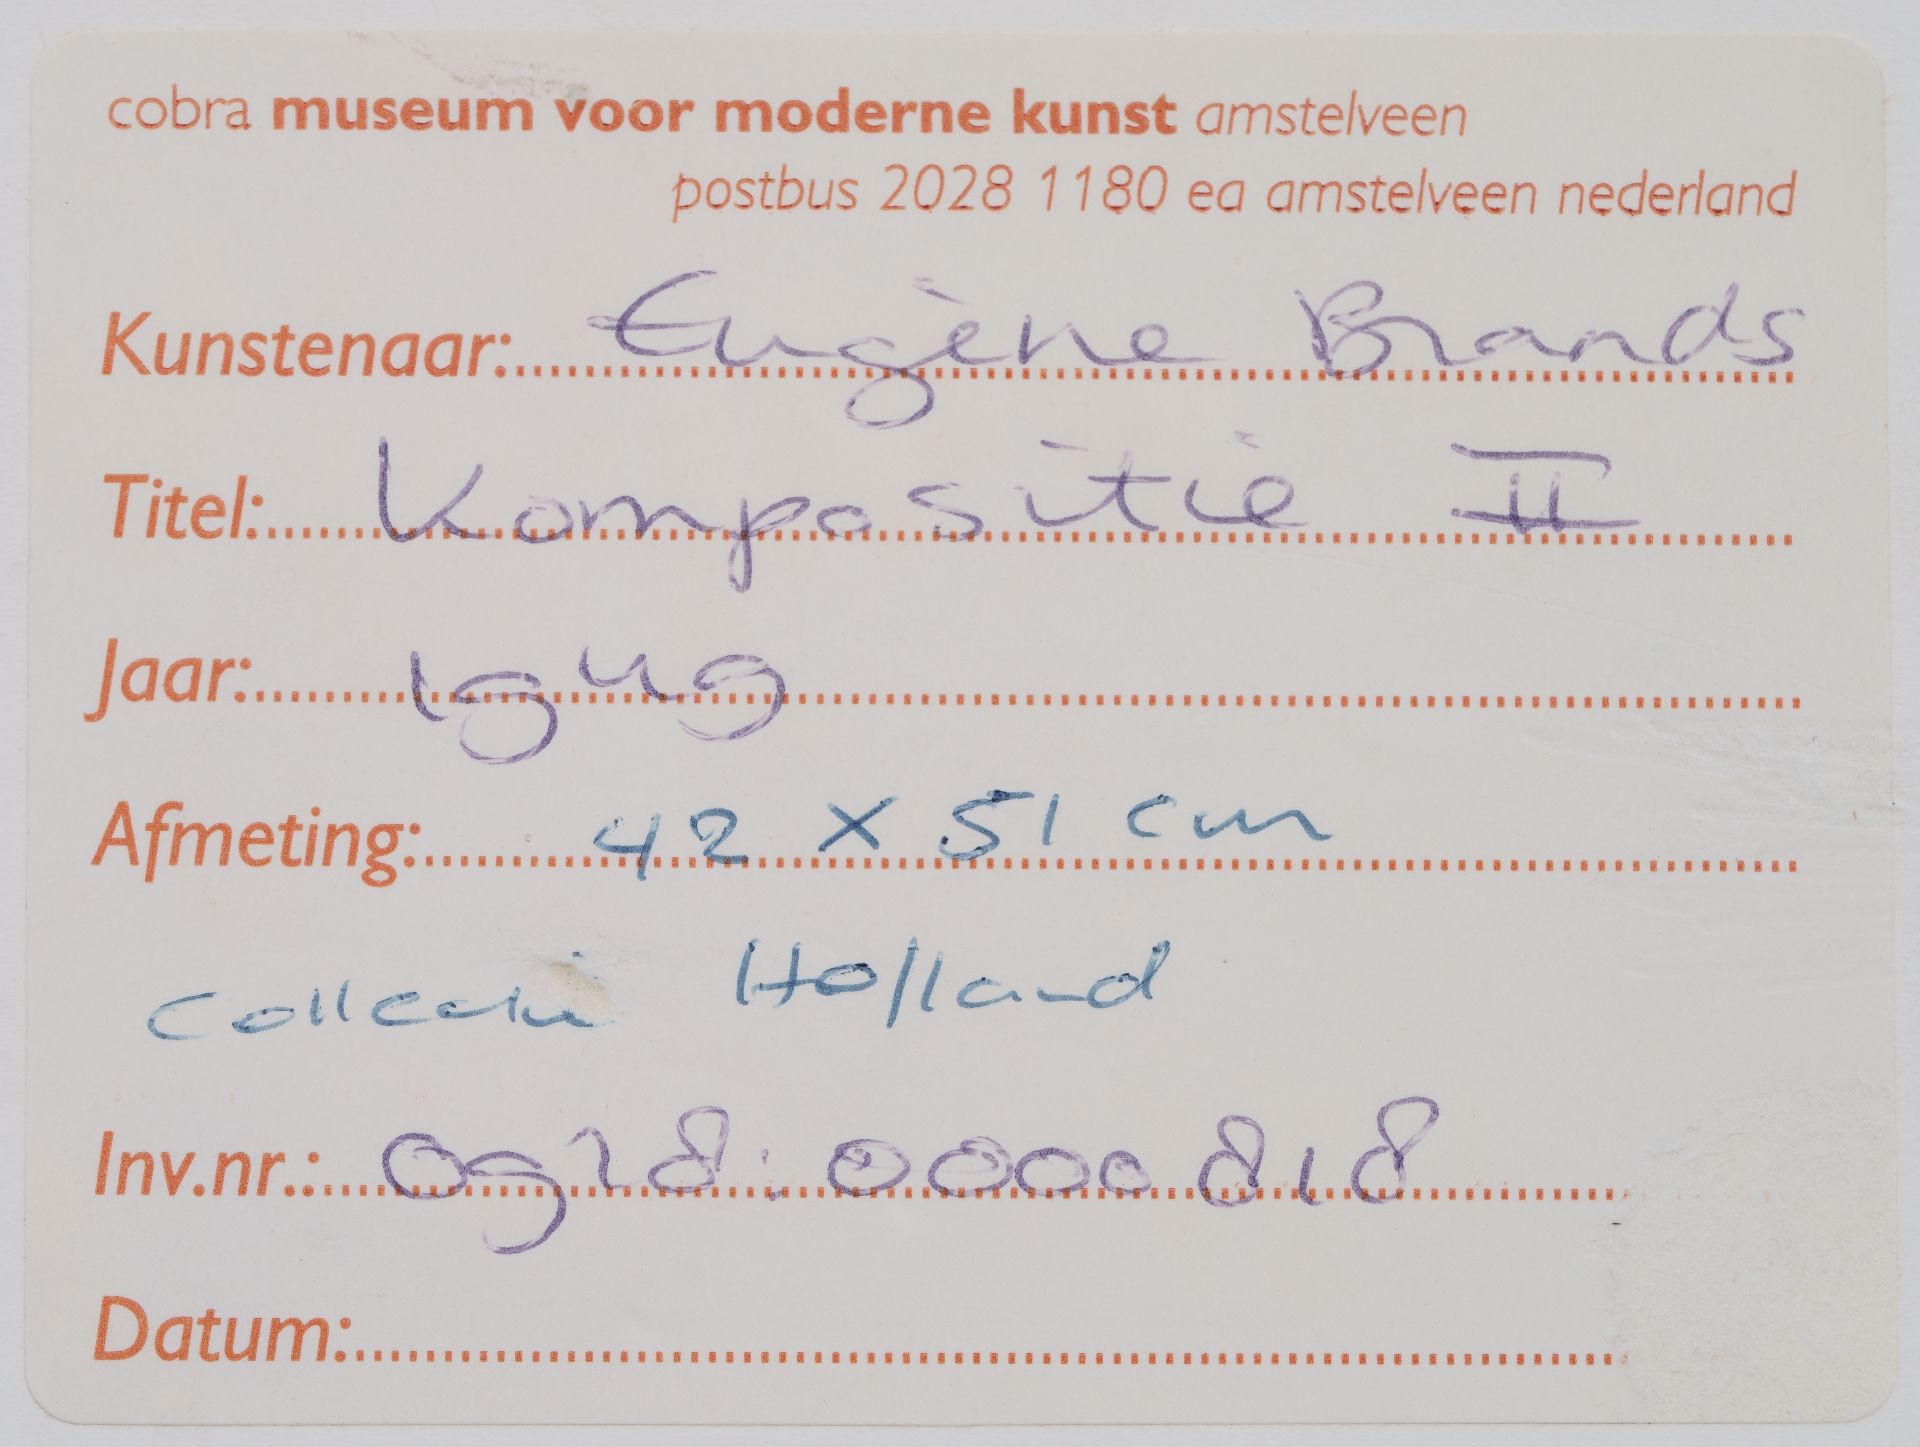 cobra museum voor moderne kunst amstelveen
postbus 2028 1180 ea amstelveen nederland
Kunstenaar: Eugène Brands
Titel: Kompositie II
Jaar: 1949
Afmeting: 42 x 51 cm
Collectie Holland
Inv.nr.: 0928:0000818
Datum: